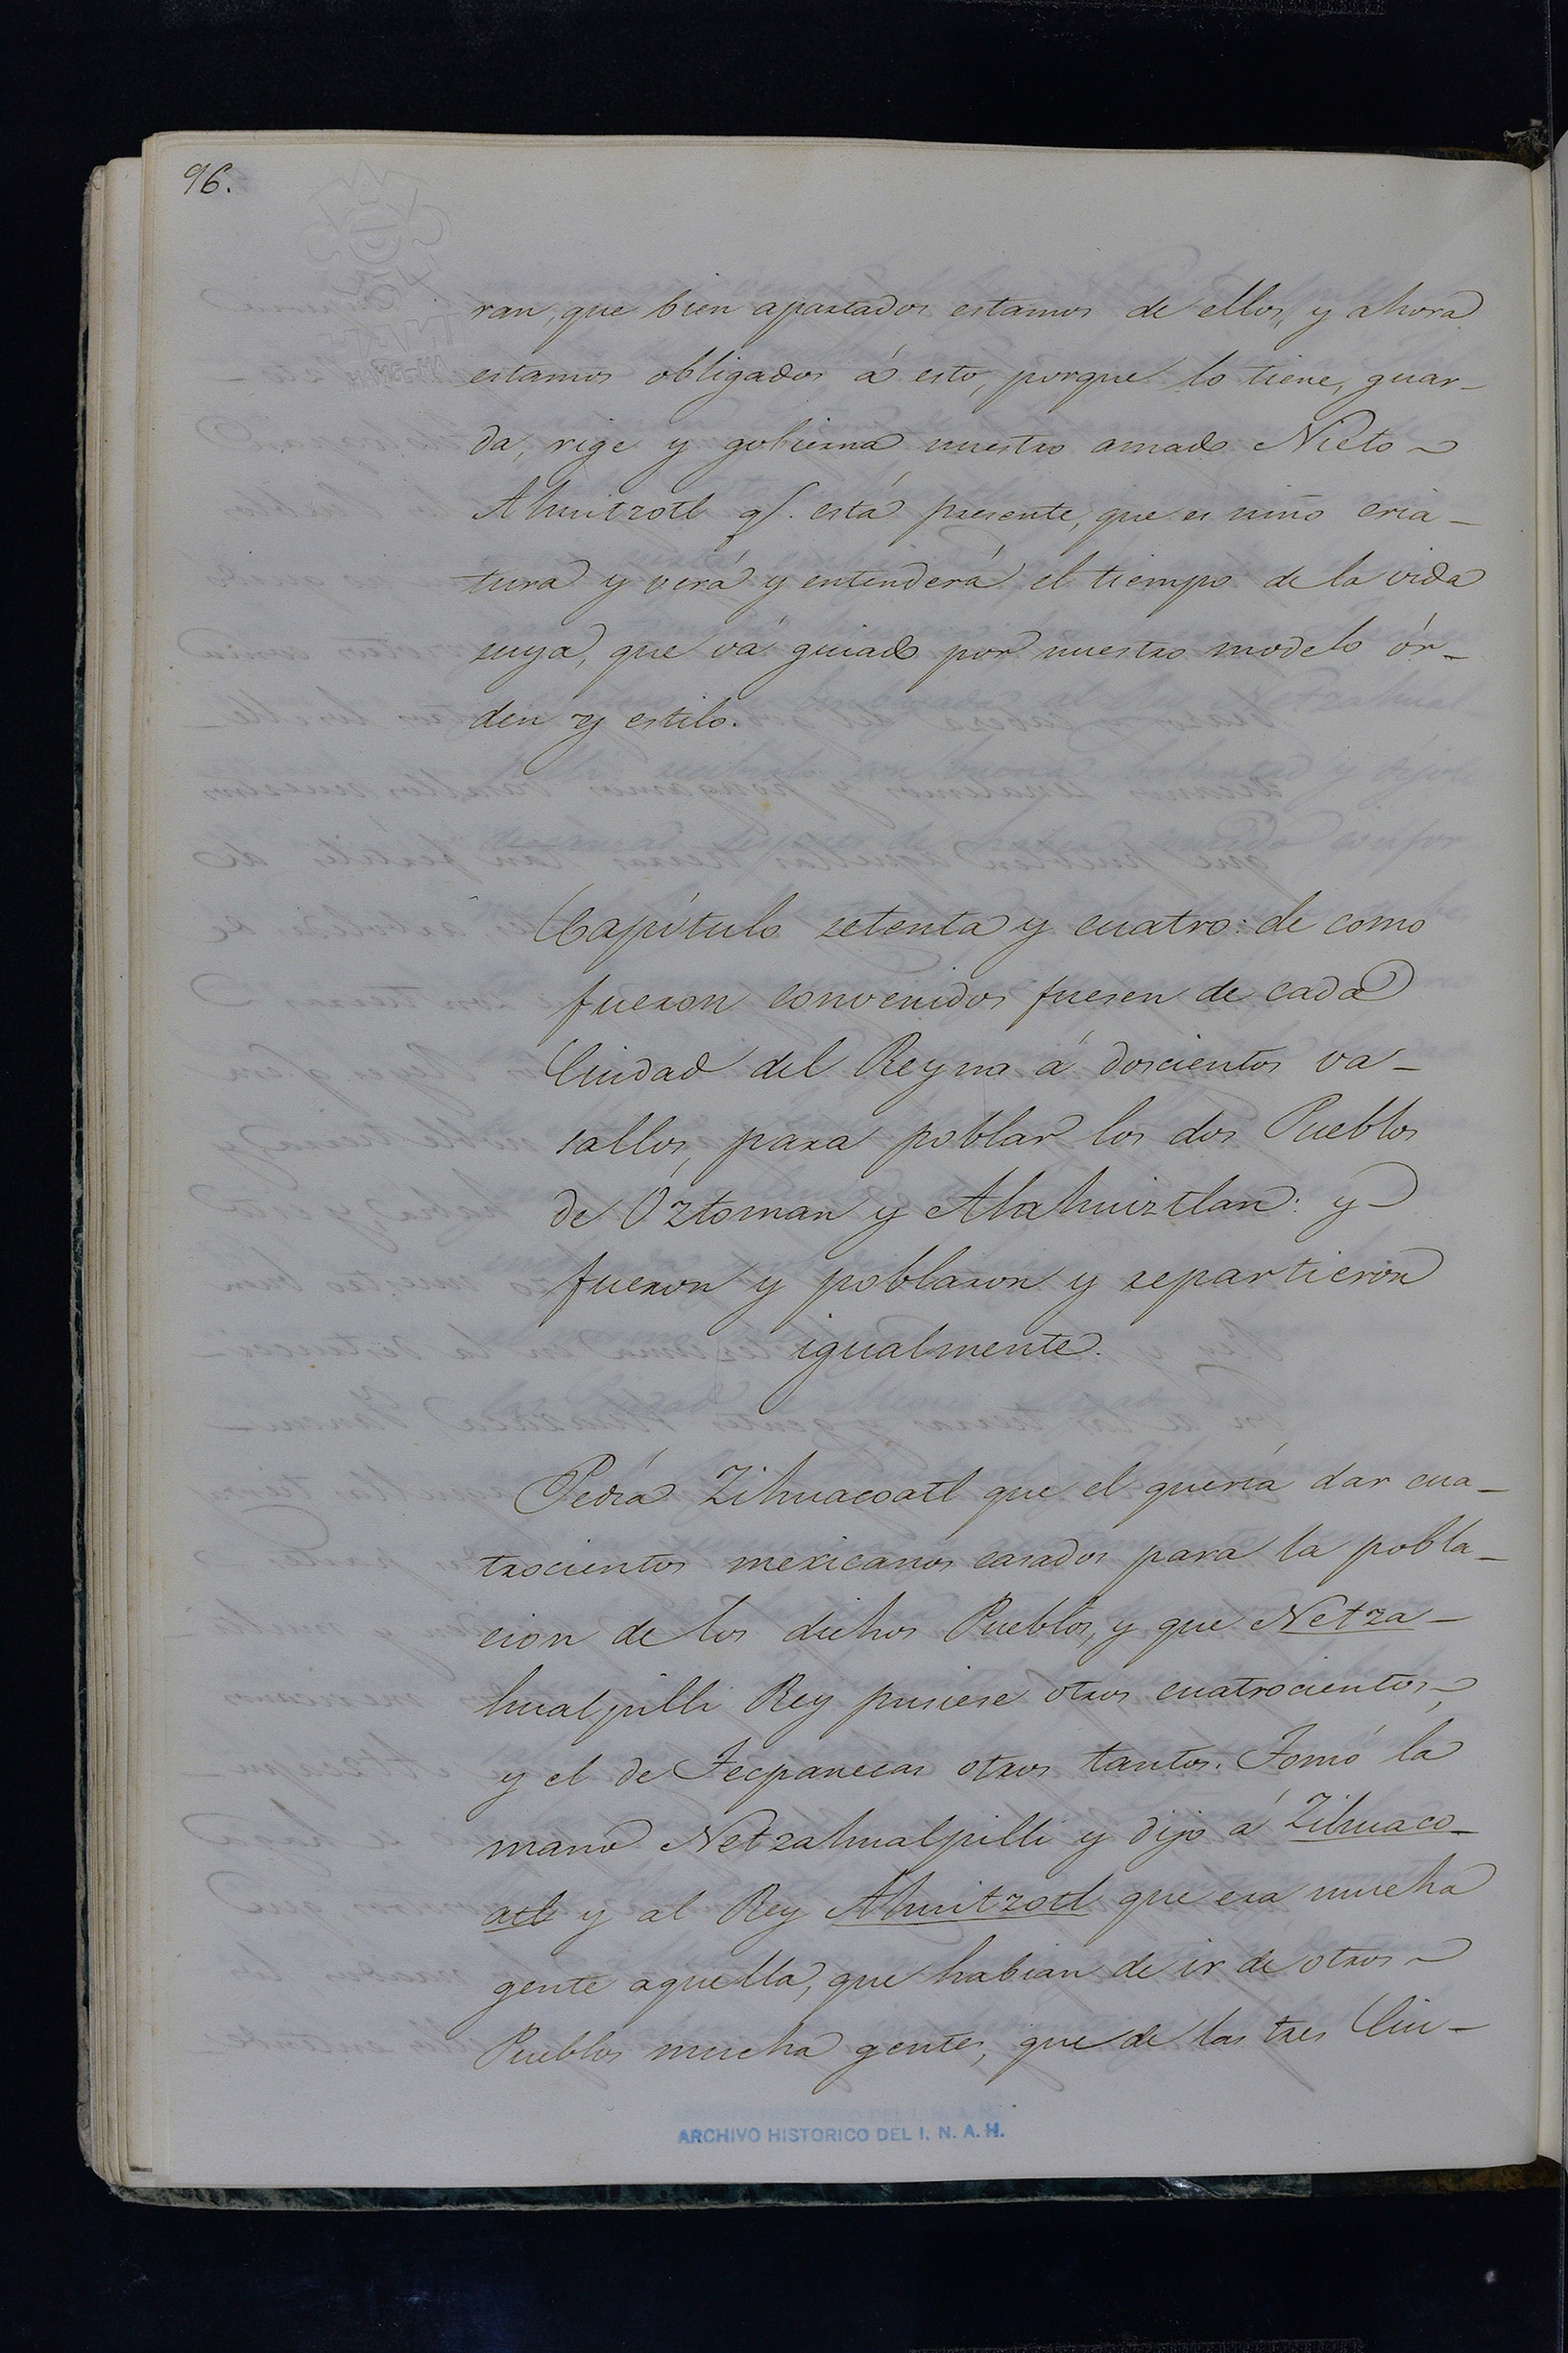 96.
ran, que bien apartados estamos de ellos, y ahora
estamos obligados á esto, porque lo tiene, guar-
da, rige y gobierna nuestro amado Nieto
Ahuitzotl q.e está presente, que es niño cria-
tura y verá y entenderá el tiempo de la vida
suya, que vá guiado por nuestro modelo ór-
den y estilo.
Capítulo setenta y cuatro: de como
fueron convenidos fuesen de cada
Ciudad del Reyno á doscientos va-
sallos, para poblar los dos Pueblos
de Oztoman y Alahuiztlan: y
fueron y poblaron y repartieron
igualmente.
Pedía Zihuacoatl que el quería dar cua-
trocientos mexicanos casados para la pobla-
cion de los dichos Pueblos, y que Netza-
hualpilli Rey pusiese otros cuatrocientos,
y el de Tecpanecas otros tantos. Tomó la
mano Netzahualpilli y dijo á Zihuaco-
atl y al Rey Ahuitzotl que era mucha
gente aquella, que habian de ir de otros
Pueblos mucha gente, que de las tres Ciu-
ARCHIVO HISTORICO DEL I. N. A. H.